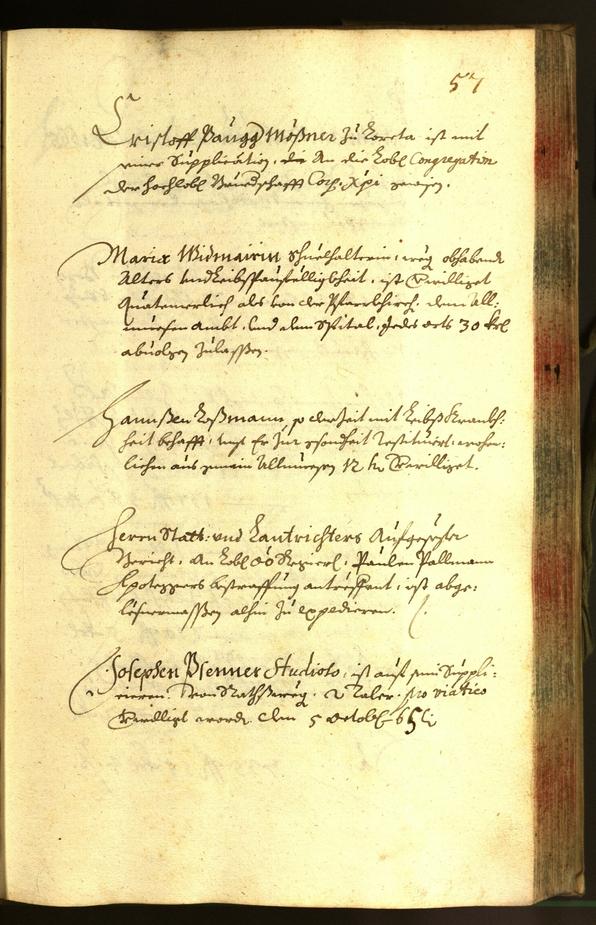 57
Cristoff Paugg Mößner zu Loreta ist mit
einer Supplication, die An die Lobl. Congregation
der hochlobl. Bruedschafft Corp. Xpi gewisen.
Maria Widmairin Schuelhalterin, weg. obhabende
Alters und Leibspaufälligkheit, ist Bewilliget
Quatemerlich als von der Pfarrkhirch, dem All-
muesen Ambt, und dem Spital, jedes orts 30 kr.
abvolgen zulassen.
Hannßen Loßmann, so derzeit mit Leibs Krankh-
heit behafft, biß Er zur gesundtheit Restituiert, wochen-
lichen aus gemain Allmuesen 12 kr. Bewilliget.
Herrn Statt: und Landtrichters Aufgesetzter
Bericht, An Lobl. OÖ Regier., Paulen Pallmann
Apoteggers bestraffung antreffent, ist abge-
lesnermassen alhin zu expedieren.
Josephen Psenner Studioso, ist auf sein Suppli-
cieren, von Raths weg. 2 Taler pro viatico
Bewilligt worde. Den 5 Octob. 65